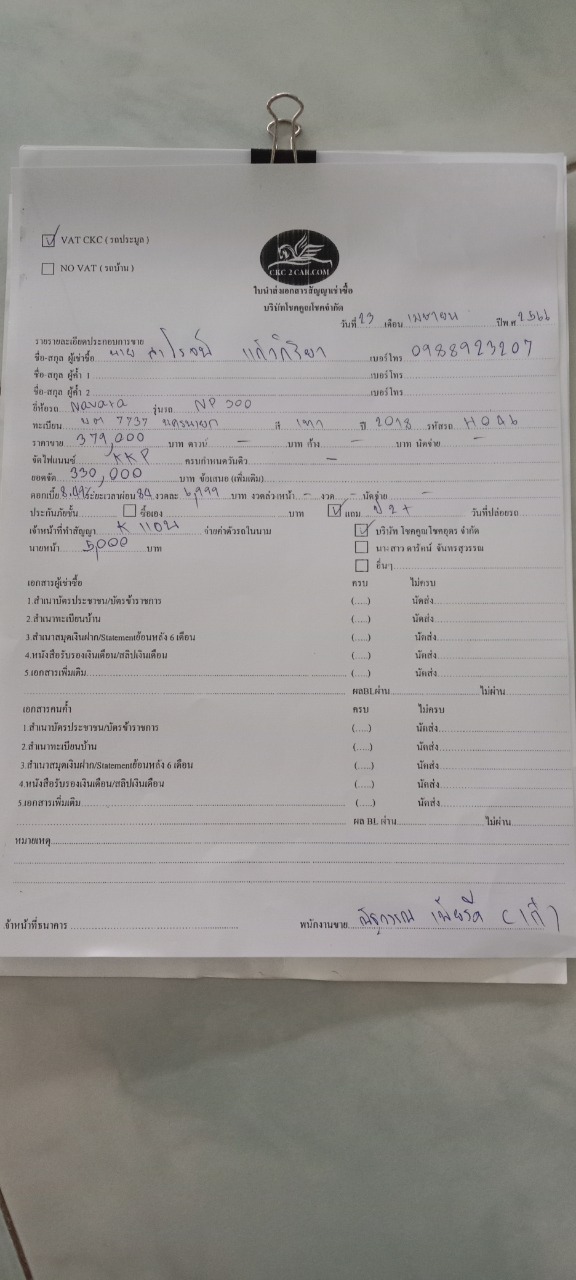 ☑ VAT CKC ( รถประมูล )
☐ NO VAT ( รถบ้าน )
CKC 2 CAR.COM
ใบนำส่งเอกสารสัญญาเช่าซื้อ
บริษัทโชคคูณโชคจำกัด
วันที่ 23 เดือน เมษายน ปีพ.ศ 2566
รายรายละเอียดประกอบการขาย
ชื่อ-สกุล ผู้เช่าซื้อ นาย สาโรจน์ เบอร์โทร 0988923207
ชื่อ-สกุล ผู้ค้ำ 1 เบอร์โทร
ชื่อ-สกุล ผู้ค้ำ 2 เบอร์โทร
ยี่ห้อรถ Navara รุ่นรถ NP 300
ทะเบียน 7737 นครนายก สี เทา ปี 2018 รหัสรถ H046
ราคาขาย 379,000 บาท ดาวน์ - บาท ค้าง - บาท นัดจ่าย -
จัดไฟแนนซ์ KKP ครบกำหนดวันคิว -
ยอดจัด 330,000 บาท ข้อเสนอ (เพิ่มเติม)
ดอกเบี้ย ระยะเวลาผ่อน 84 งวดละ 6,999 บาท งวดล่วงหน้า - งวด - นัดจ่าย -
ประกันภัยชั้น ☐ ซื้อเอง บาท ☑ แถม ป 2+ วันที่ปล่อยรถ
เจ้าหน้าที่ทำสัญญา K แอน จ่ายค่าตัวรถในนาม ☑ บริษัท โชคคูณโชคอุดร จำกัด
นายหน้า 5,000 บาท ☐ นางสาว ดารัตน์ จันทรสุวรรณ
☐ อื่นๆ
เอกสารผู้เช่าซื้อ ครบ ไม่ครบ
1.สำเนาบัตรประชาชน/บัตรข้าราชการ (.....) นัดส่ง
2.สำเนาทะเบียนบ้าน (.....) นัดส่ง
3.สำเนาสมุดเงินฝาก/Statementย้อนหลัง 6 เดือน (.....) นัดส่ง
4.หนังสือรับรองเงินเดือน/สลิปเงินเดือน (.....) นัดส่ง
5.เอกสารเพิ่มเติม (.....) นัดส่ง
ผลBLผ่าน ไม่ผ่าน
เอกสารคนค้ำ ครบ ไม่ครบ
1.สำเนาบัตรประชาชน/บัตรข้าราชการ (.....) นัดส่ง
2.สำเนาทะเบียนบ้าน (.....) นัดส่ง
3.สำเนาสมุดเงินฝาก/Statementย้อนหลัง 6 เดือน (.....) นัดส่ง
4.หนังสือรับรองเงินเดือน/สลิปเงินเดือน (.....) นัดส่ง
5.เอกสารเพิ่มเติม (.....) นัดส่ง
ผล BL ผ่าน ไม่ผ่าน
หมายเหตุ
จ้าหน้าที่ธนาคาร พนักงานขาย